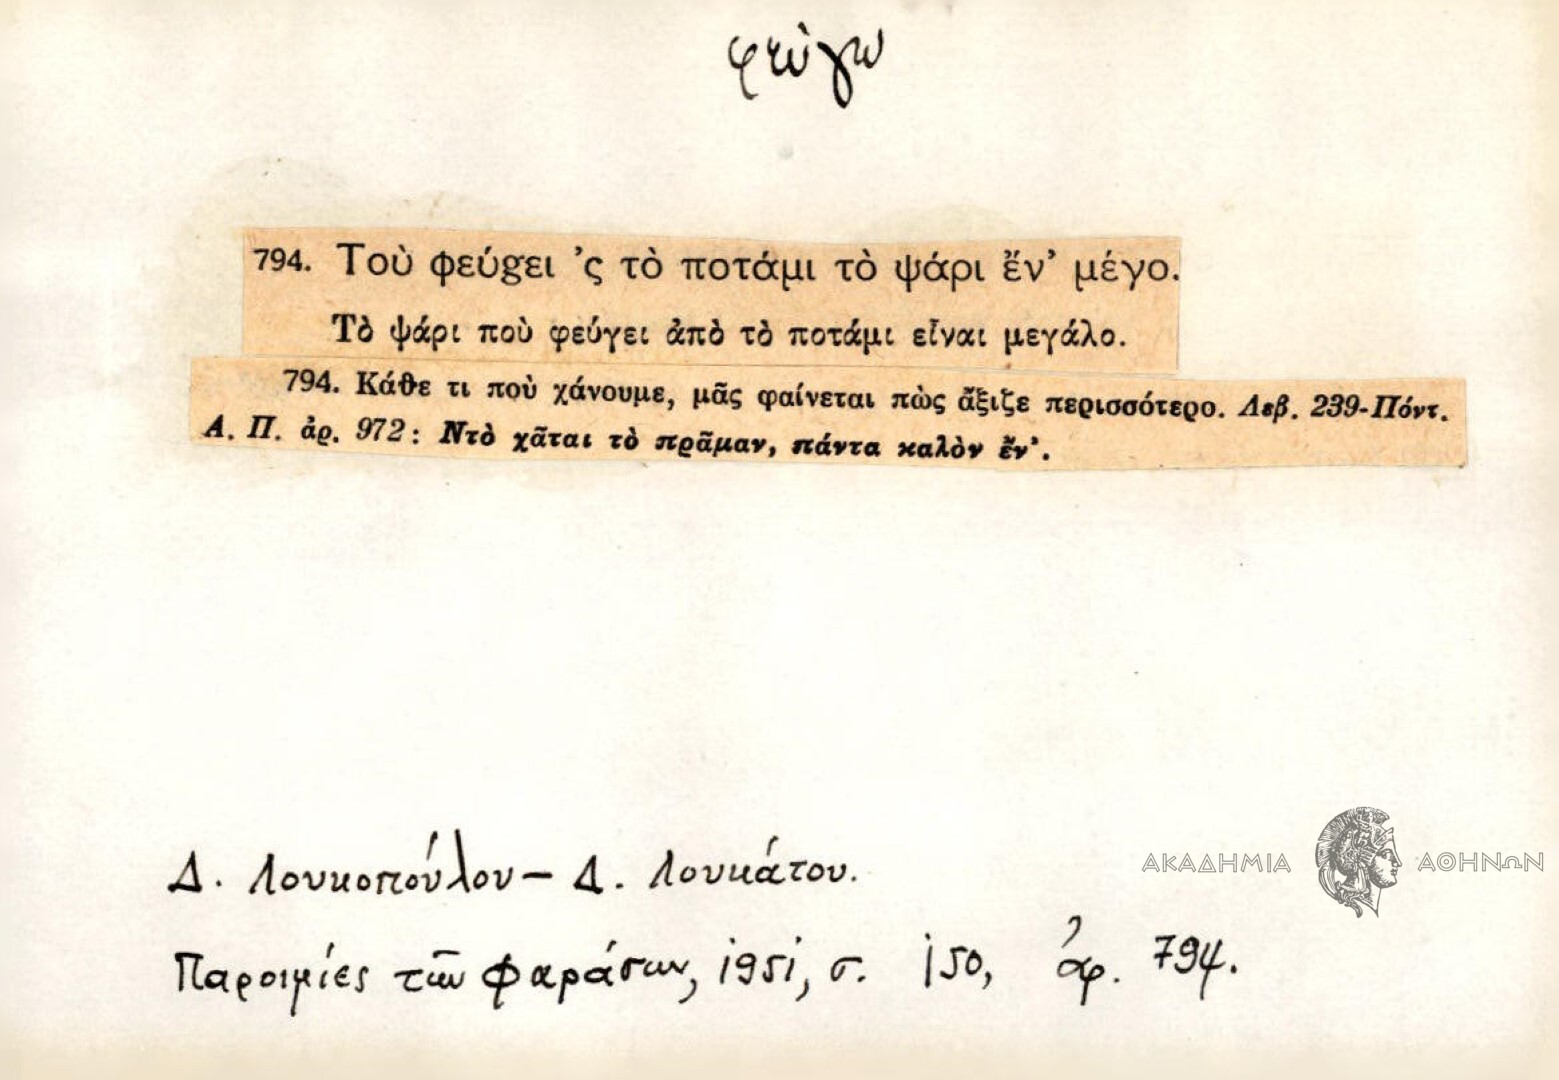 φεύγω
794. Τοὺ φεύgει ’ς τὸ ποτάμι τὸ ψάρι ἔν’ μέγο.
Τὸ ψάρι ποὺ φεύγει ἀπὸ τὸ ποτάμι εἶναι μεγάλο.
794. Κάθε τι ποὺ χάνουμε, μᾶς φαίνεται πὼς ἄξιζε περισσότερο. Λεβ. 239-Πόντ.
Α. Π. ἀρ. 972: Ντὸ χᾶται τὸ πρᾶμαν, πάντα καλὸν ἔν’.
Δ. Λουκοπούλου – Δ. Λουκάτου.
ΑΚΑΔΗΜΙΑ ΑΘΗΝΩΝ
Παροιμίες τῶν Φαράσων, 1951, σ. 150, ἀρ. 794.